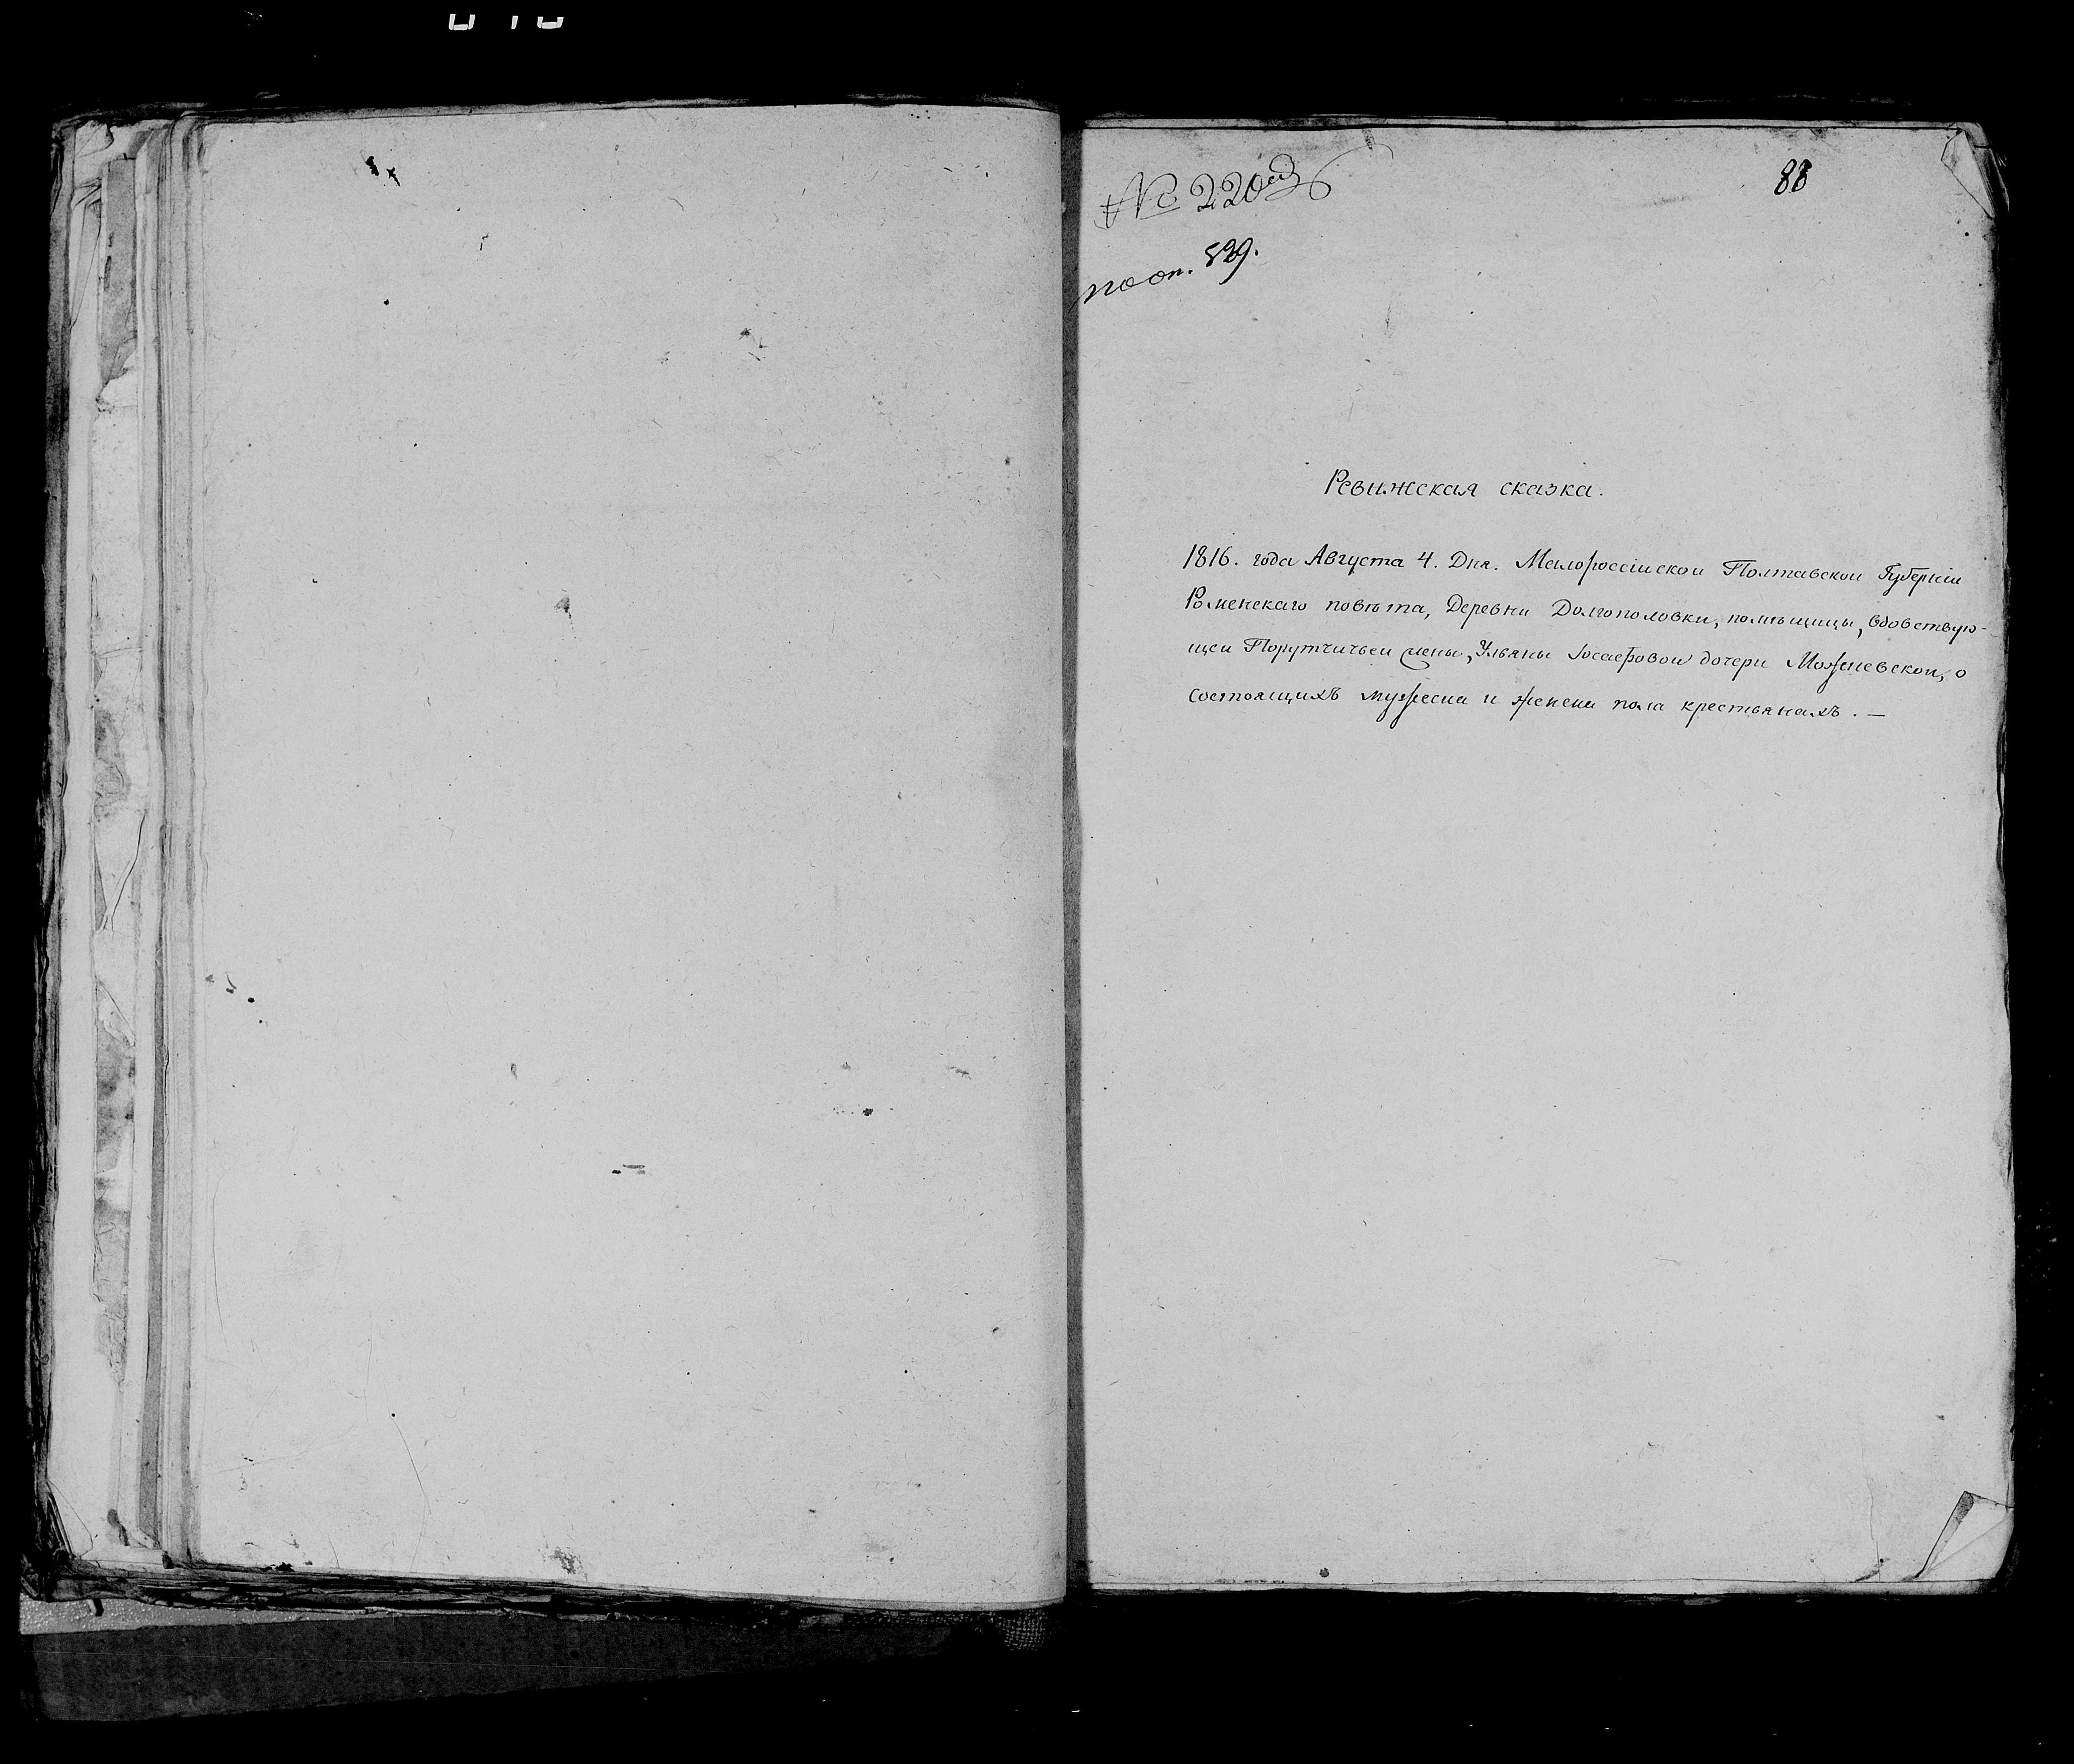 № 220й
88
по оп. 529.
Ревижская сказка.
1816. года Августа 4. Дня. Малороссійской Полтавской Губерніи
Роменскаго повѣта, Деревни Долгополовки, помѣщицы, вдовствую-
щей Порутчичьей жены, Ульяны Iосаефовой дочери Можневской, о
состоящихъ мужеска и женска пола крестьянахъ. —